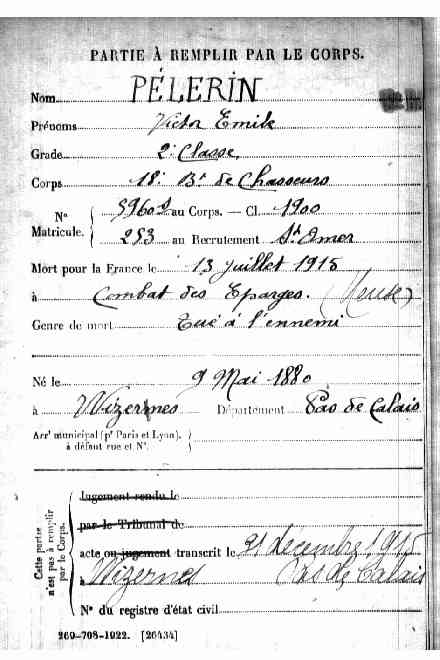 PARTIE À REMPLIR PAR LE CORPS.
Nom PÉLERIN
Prénoms Victor Emile
Grade 2e Classe
Corps 18e Bn de Chasseurs
N° Matricule. { 5960 au Corps. — Cl. 1900
253 au Recrutement St Omer
Mort pour la France le 13 juillet 1915
à Combat des Eparges. (Meuse)
Genre de mort Tué à l'ennemi
Né le 9 Mai 1880
à Wizernes Département Pas de Calais
Arrt municipal (pr Paris et Lyon),
à défaut rue et N°.
Cette partie n'est pas à remplir par le Corps.
Jugement rendu le
par le Tribunal de
acte ou jugement transcrit le 21 décembre 1915
à Wizernes Pas de Calais
N° du registre d'état civil
269-708-1922. [26434]